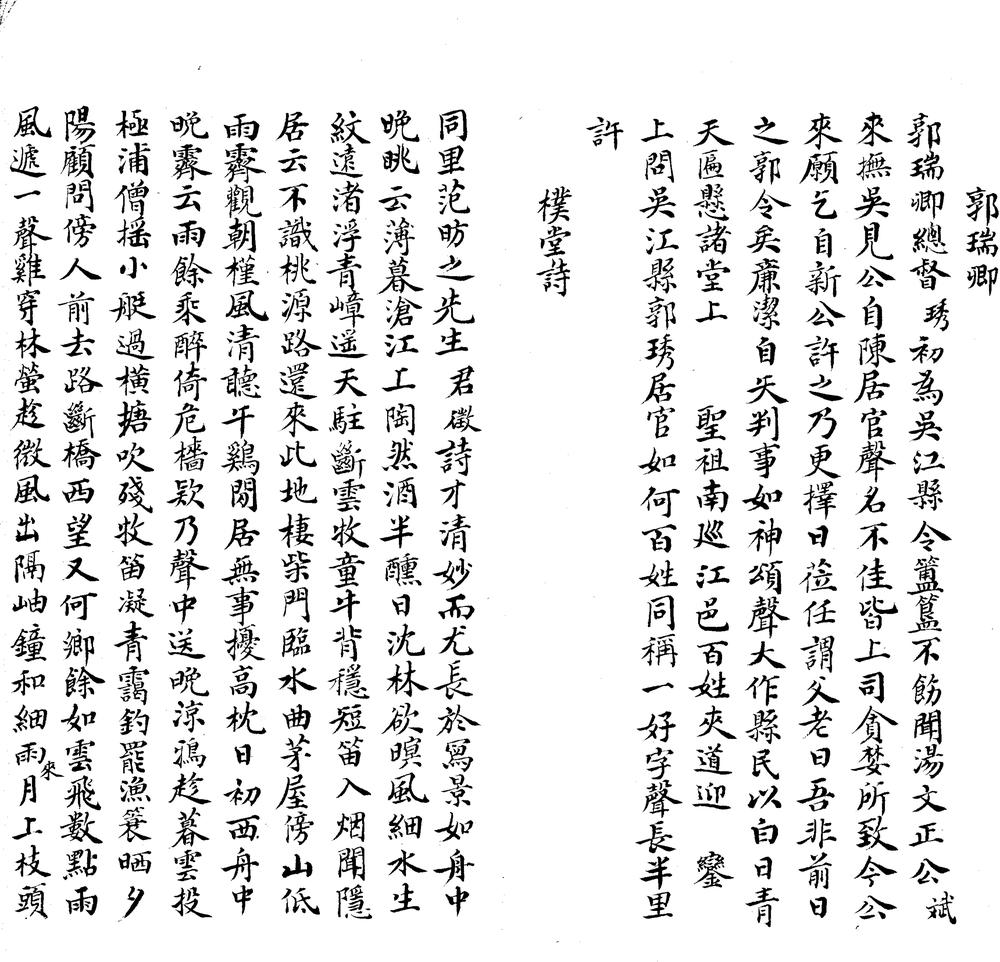 郭瑞卿
郭瑞卿總督琇初為吳江縣令簠簋不飭聞湯文正公斌
來撫吳見公自陳居官聲名不佳皆上司貪婪所致今公
來願乞自新公許之乃更擇日蒞任謂父老曰吾非前日
之郭令矣廉潔自矢判事如神頌聲大作縣民以白日青
天匾懸諸堂上 聖祖南巡江邑百姓夾道迎 鑾
上問吳江縣郭琇居官如何百姓同稱一好字聲長半里
許
樸堂詩
同里范昉之先生君徵詩才清妙而尤長於寫景如舟中
晚眺云薄暮滄江上陶然酒半醺日沈林欲暝風細水生
紋遠渚浮青嶂遥天駐斷雲牧童牛背穩短笛入烟聞隱
居云不識桃源路還來此地棲柴門臨水曲茅屋傍山低
雨霽觀朝槿風清聽午鷄閒居無事擾高枕日初西舟中
晚霽云雨餘乘醉倚危檣欵乃聲中送晚涼鴉趁暮雲投
極浦僧摇小艇過横塘吹殘牧笛凝青靄釣罷漁蓑晒夕
陽顧問傍人前去路斷橋西望又何鄉餘如雲飛數點雨
風遞一聲雞穿林螢趁微風出隔岫鐘和細雨來月上枝頭